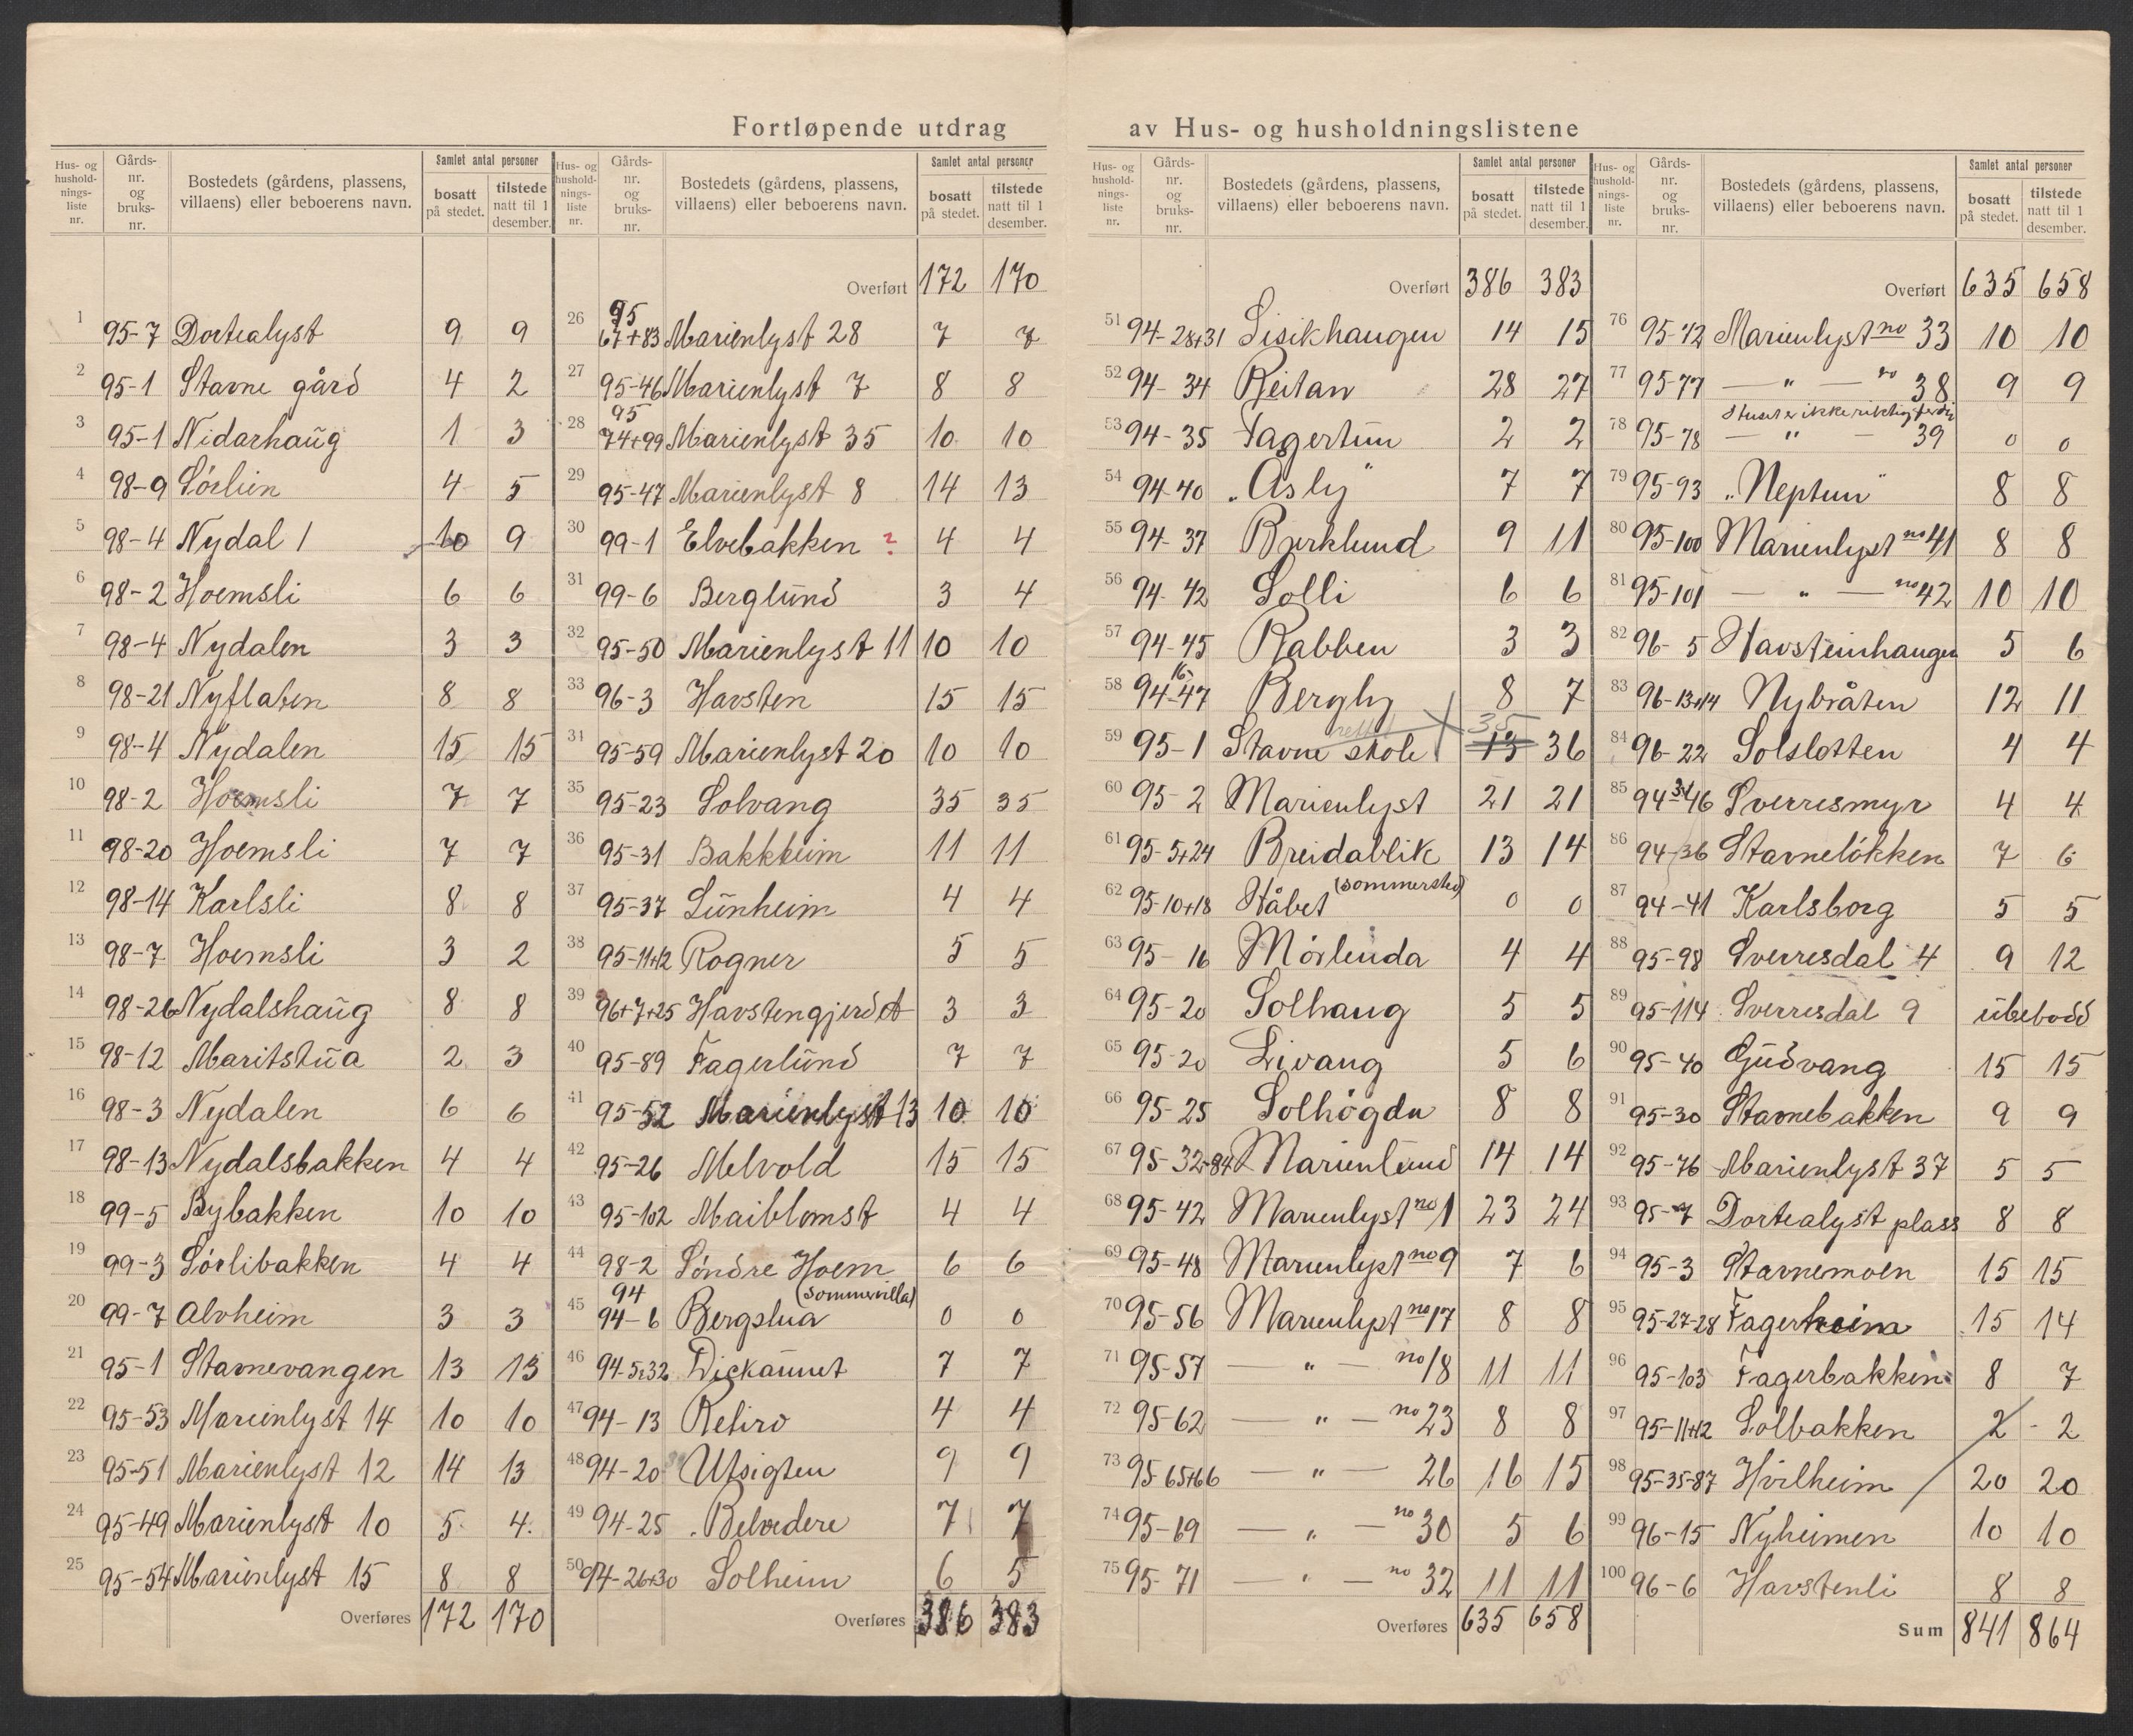 Fortløpende utdrag
Hus- og husholdningsliste nr. | Gårds-nr. og bruks-nr. | Bostedets (gårdens, plassens, villaens) eller beboerens navn. | Samlet antal personer | bosatt på stedet. | tilstede natt til 1 desember.
1 95-7 Dortealyst 9 9
2 95-1 Stavne gård 4 2
3 95-1 Nidarhaug 1 3
4 98-9 Sørlien 4 5
5 98-4 Nydal 1 10 9
6 98-2 Hoemsli 6 6
7 98-4 Nydalen 3 3
8 98-21 Nyflaten 8 8
9 98-4 Nydalen 15 15
10 98-2 Hoemsli 7 7
11 98-20 Hoemsli 7 7
12 98-14 Karlsli 8 8
13 98-7 Hoemsli 3 2
14 98-26 Nydalshaug 8 8
15 98-12 Maritstua 2 3
16 98-3 Nydalen 6 6
17 98-13 Nydalsbakken 4 4
18 99-5 Bybakken 10 10
19 99-3 Sørlibakken 4 4
20 99-7 Alvheim 3 3
21 95-1 Stavnevangen 13 13
22 95-53 Marienlyst 14 10 10
23 95-51 Marienlyst 12 14 13
24 95-49 Marienlyst 10 5 4
25 95-54 Marienlyst 15 8 8
Overføres 172 170
Hus- og husholdningsliste nr. | Gårds-nr. og bruks-nr. | Bostedets (gårdens, plassens, villaens) eller beboerens navn. | Samlet antal personer | bosatt på stedet. | tilstede natt til 1 desember.
Overført 172 170
26 95 67+83 Marienlyst 28 7 7
27 95-46 Marienlyst 7 8 8
28 95 74+99 Marienlyst 35 10 10
29 95-47 Marienlyst 8 14 13
30 99-1 Elvebakken ? 4 4
31 99-6 Berglund 3 4
32 95-50 Marienlyst 11 10 10
33 96-3 Havsten 15 15
31 95-59 Marienlyst 20 10 10
35 95-23 Solvang 35 35
36 95-31 Bakkheim 11 11
37 95-37 Lunheim 4 4
38 95-11+12 Rogner 5 5
39 96+7+25 Havstengjerdet 3 3
40 95-89 Fagerlund 7 7
41 95-52 Marienlyst 13 10 10
42 95-26 Melvold 15 15
43 95-102 Maiblomst 4 4
44 98-2 Søndre Hoem 6 6
45 94 94-6 Bergstua (Sommervilla) 0 0
46 94-5:32 Dickaunet 7 7
47 94-13 Retiro 4 4
48 94-20 Utsigten 9 9
49 94-25 Belvedere 7 7
50 94-26+30 Solheim 6 5
Overføres 386 383
av Hus- og husholdningslistene
Hus- og husholdningsliste nr. | Gårds-nr. og bruks-nr. | Bostedets (gårdens, plassens, villaens) eller beboerens navn. | Samlet antal personer | bosatt på stedet. | tilstede natt til 1 desember.
Overført 386 383
51 94-28+31 Sisikhaugen 14 15
52 94-34 Reitan 28 27
53 94-35 Fagertun 2 2
54 94-40 „Åsly" 7 7
55 94-37 Bjerklund 9 11
56 94-42 Solli 6 6
57 94-45 Rabben 3 3
58 94-47 Bergly 8 7
59 95-1 Stavne skole 13 35 36
60 95-2 Marienlyst 21 21
61 95-5+24 Breidablik 13 14
62 95-10+18 Håbet (sommersted) 0 0
63 95-16 Mórlinda 4 4
64 95-20 Solhaug 5 5
65 95-20 Livang 5 6
66 95-25 Solhøgda 8 8
67 95-32+84 Marienlund 14 14
68 95-42 Marienlyst no 1 23 24
69 95-48 Marienlyst no 9 7 6
70 95-56 Marienlyst no 17 8 8
71 95-57 — „ — no 18 11 11
72 95-62 — „ — no 23 8 8
73 95-65+66 — „ — 26 16 15
74 95-69 — „ — no 30 5 6
75 95-71 — „ — no 32 11 11
Overføres 635 658
Hus- og husholdningsliste nr. | Gårds-nr. og bruks-nr. | Bostedets (gårdens, plassens, villaens) eller beboerens navn. | Samlet antal personer | bosatt på stedet. | tilstede natt til 1 desember.
Overført 635 658
76 95-72 Marienlyst no 33 10 10
77 95-77 — „ — no 38 9 9
Huset er ikke riktig ferdig
78 95-78 — „ — 39 0 0
79 95-93 „Neptun" 8 8
80 95-100 Marienlyst no 41 8 8
81 95-101 — „ — no 42 10 10
82 96-5 Havsteinhaugen 5 6
83 96-13+14 Nybråten 12 11
84 96-22 Solslotten 4 4
85 94-34 46 Sverresmyr 4 4
86 94-36 Stavneløkken 7 6
87 94-41 Karlsborg 5 5
88 95-98 Sverresdal 4 9 12
89 95-114 Sverresdal 9 ubebodd
90 95-40 Gudvang 15 15
91 95-30 Stavnebakken 9 9
92 95-76 Marienlyst 37 5 5
93 95-7 Dortealyst plass 8 8
94 95-3 Stavnemoen 15 15
95 95-27-28 Fagerheim 15 14
96 95-103 Fagerbakken 8 7
97 95-11+12 Solbakken 2 - 2
98 95-35-87 Hvilheim 20 20
99 96-15 Nyheimen 10 10
100 96-6 Havstenli 8 8
Sum 841 864